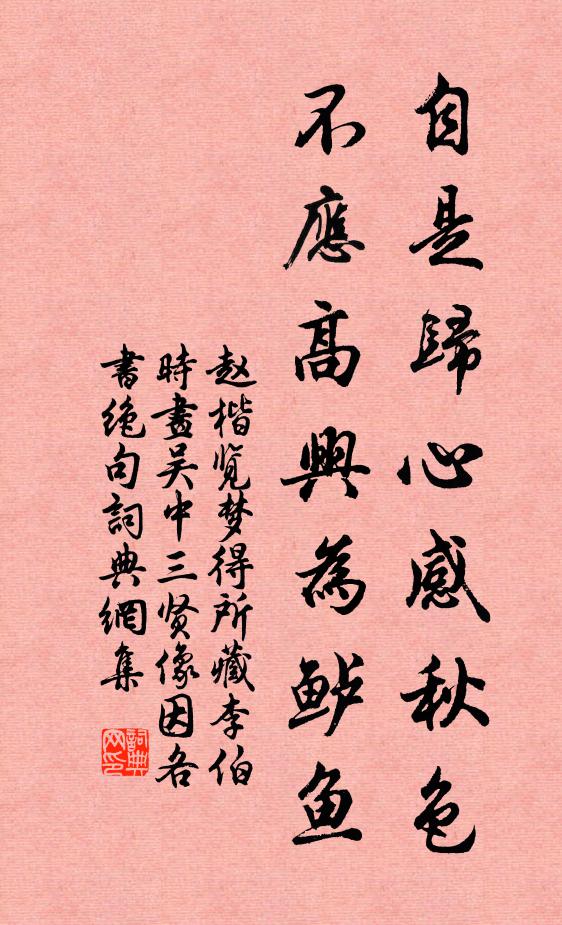 自是歸心感秋色
不應高興為鲈魚
赵楷览梦得所藏李伯
時畫吴中三贤像因各
書绝句詞典網集
詞典网印